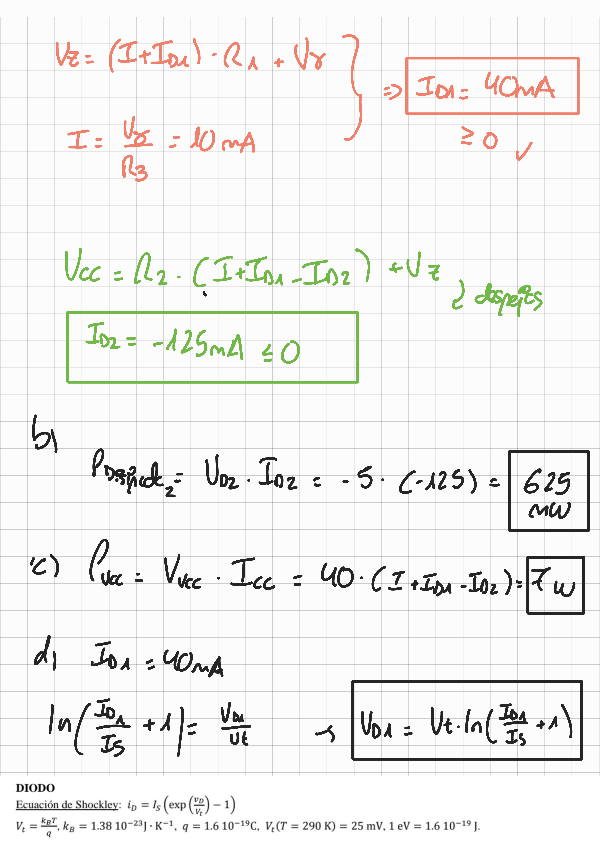 Vz = (I+ID1) · R1 + Vγ
⇒ ID1 = 40mA
I = Vγ/R3 = 10mA
≥ 0 ✓
Vcc = R2 · (I+ID1-ID2) + Vz
despejas
ID2 = -125mA ≤ 0
b)
PDisipada2 = VD2 · ID2 = -5 · (-125) = 625 mW
c) Pvcc = Vvcc · Icc = 40 · (I+ID1-ID2) = 7w
d) ID1 = 40mA
ln(ID1/IS + 1) = VD1/Ut → VD1 = Vt·ln(ID1/IS + 1)
DIODO
Ecuación de Shockley: iD = IS (exp(vD/Vt) − 1)
Vt = kBT/q, kB = 1.38 10⁻²³J · K⁻¹, q = 1.6 10⁻¹⁹C, Vt(T = 290 K) = 25 mV, 1 eV = 1.6 10⁻¹⁹ J.